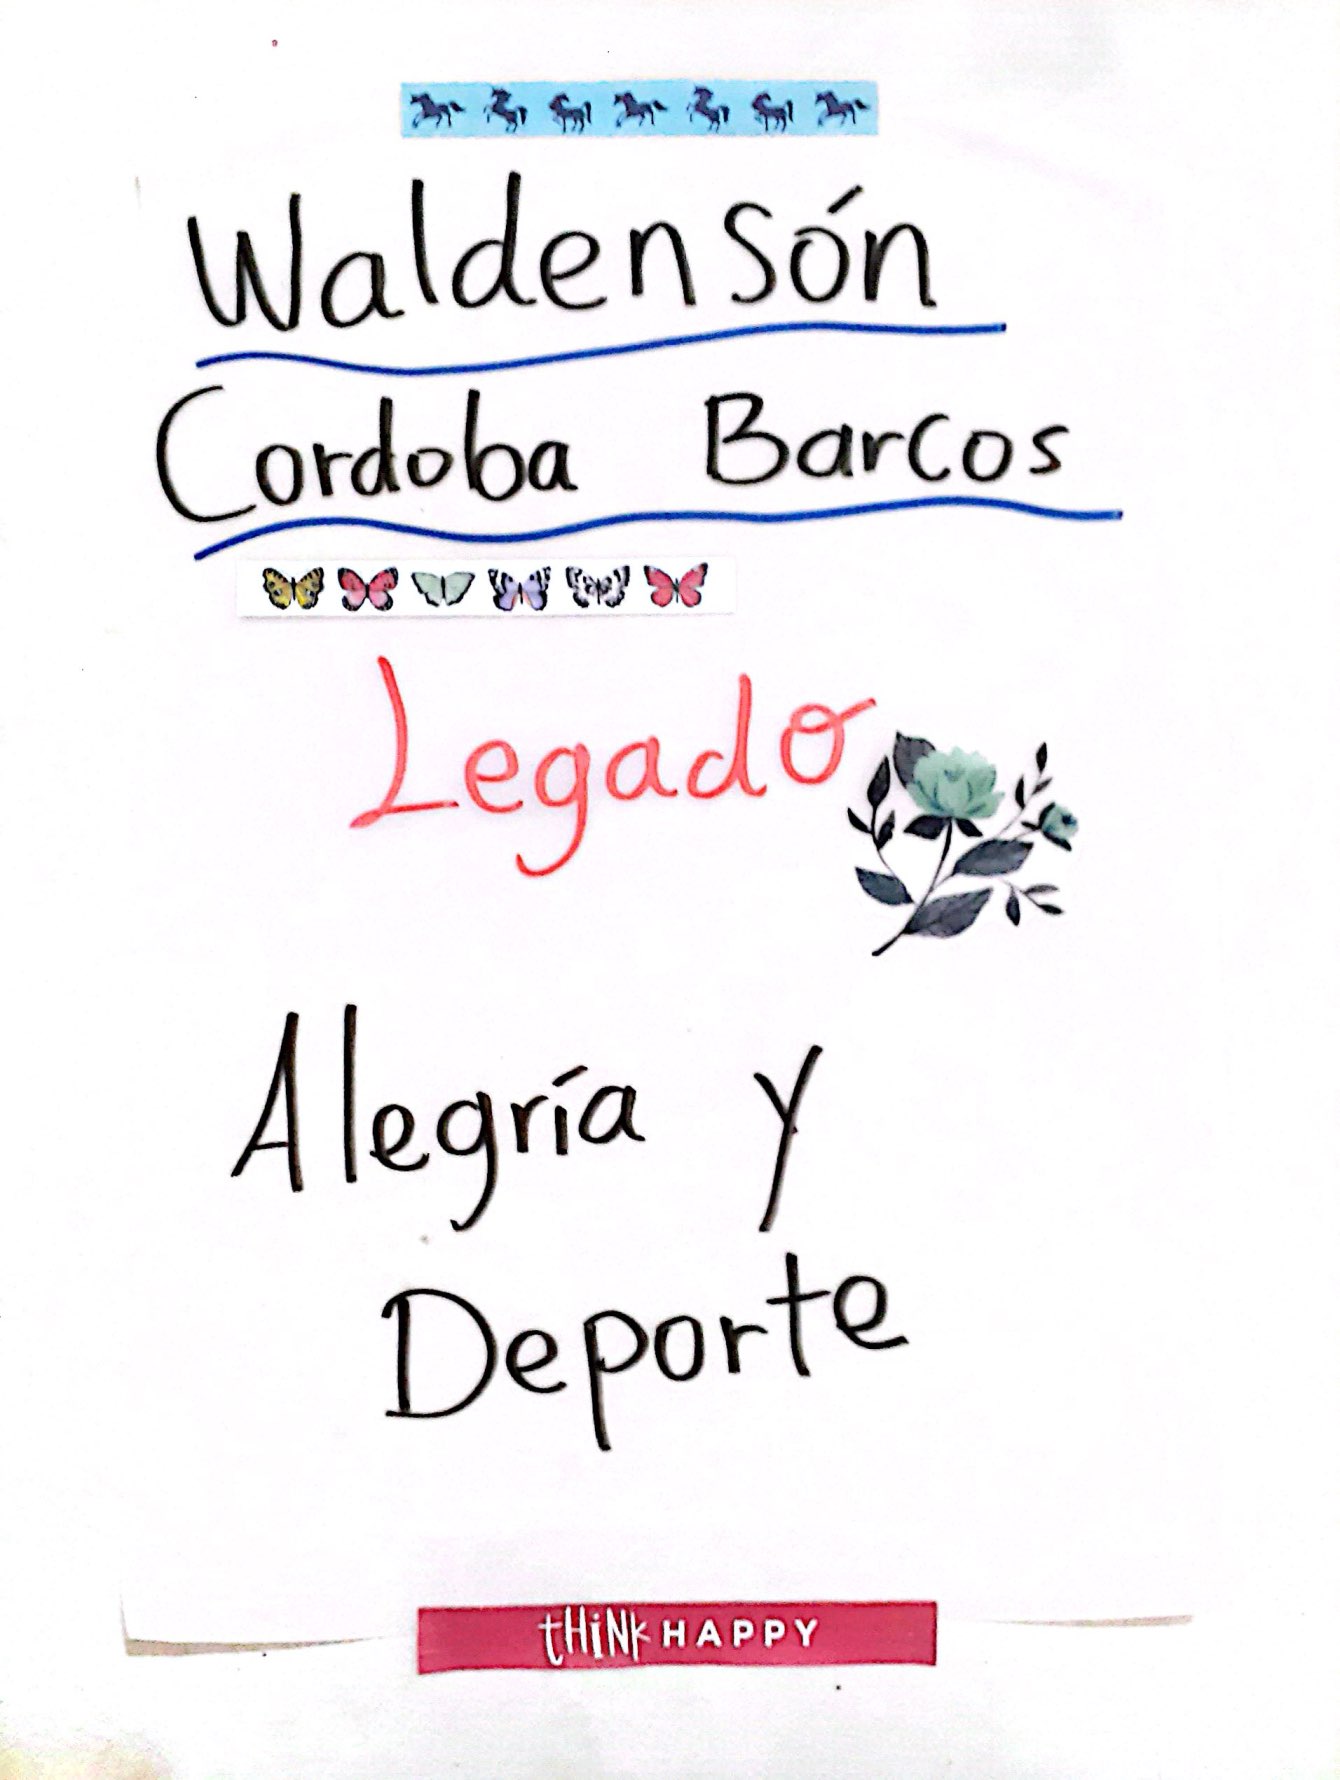 Waldensón
Cordoba Barcos
Legado
Alegría y
Deporte
tHiNk HAPPY